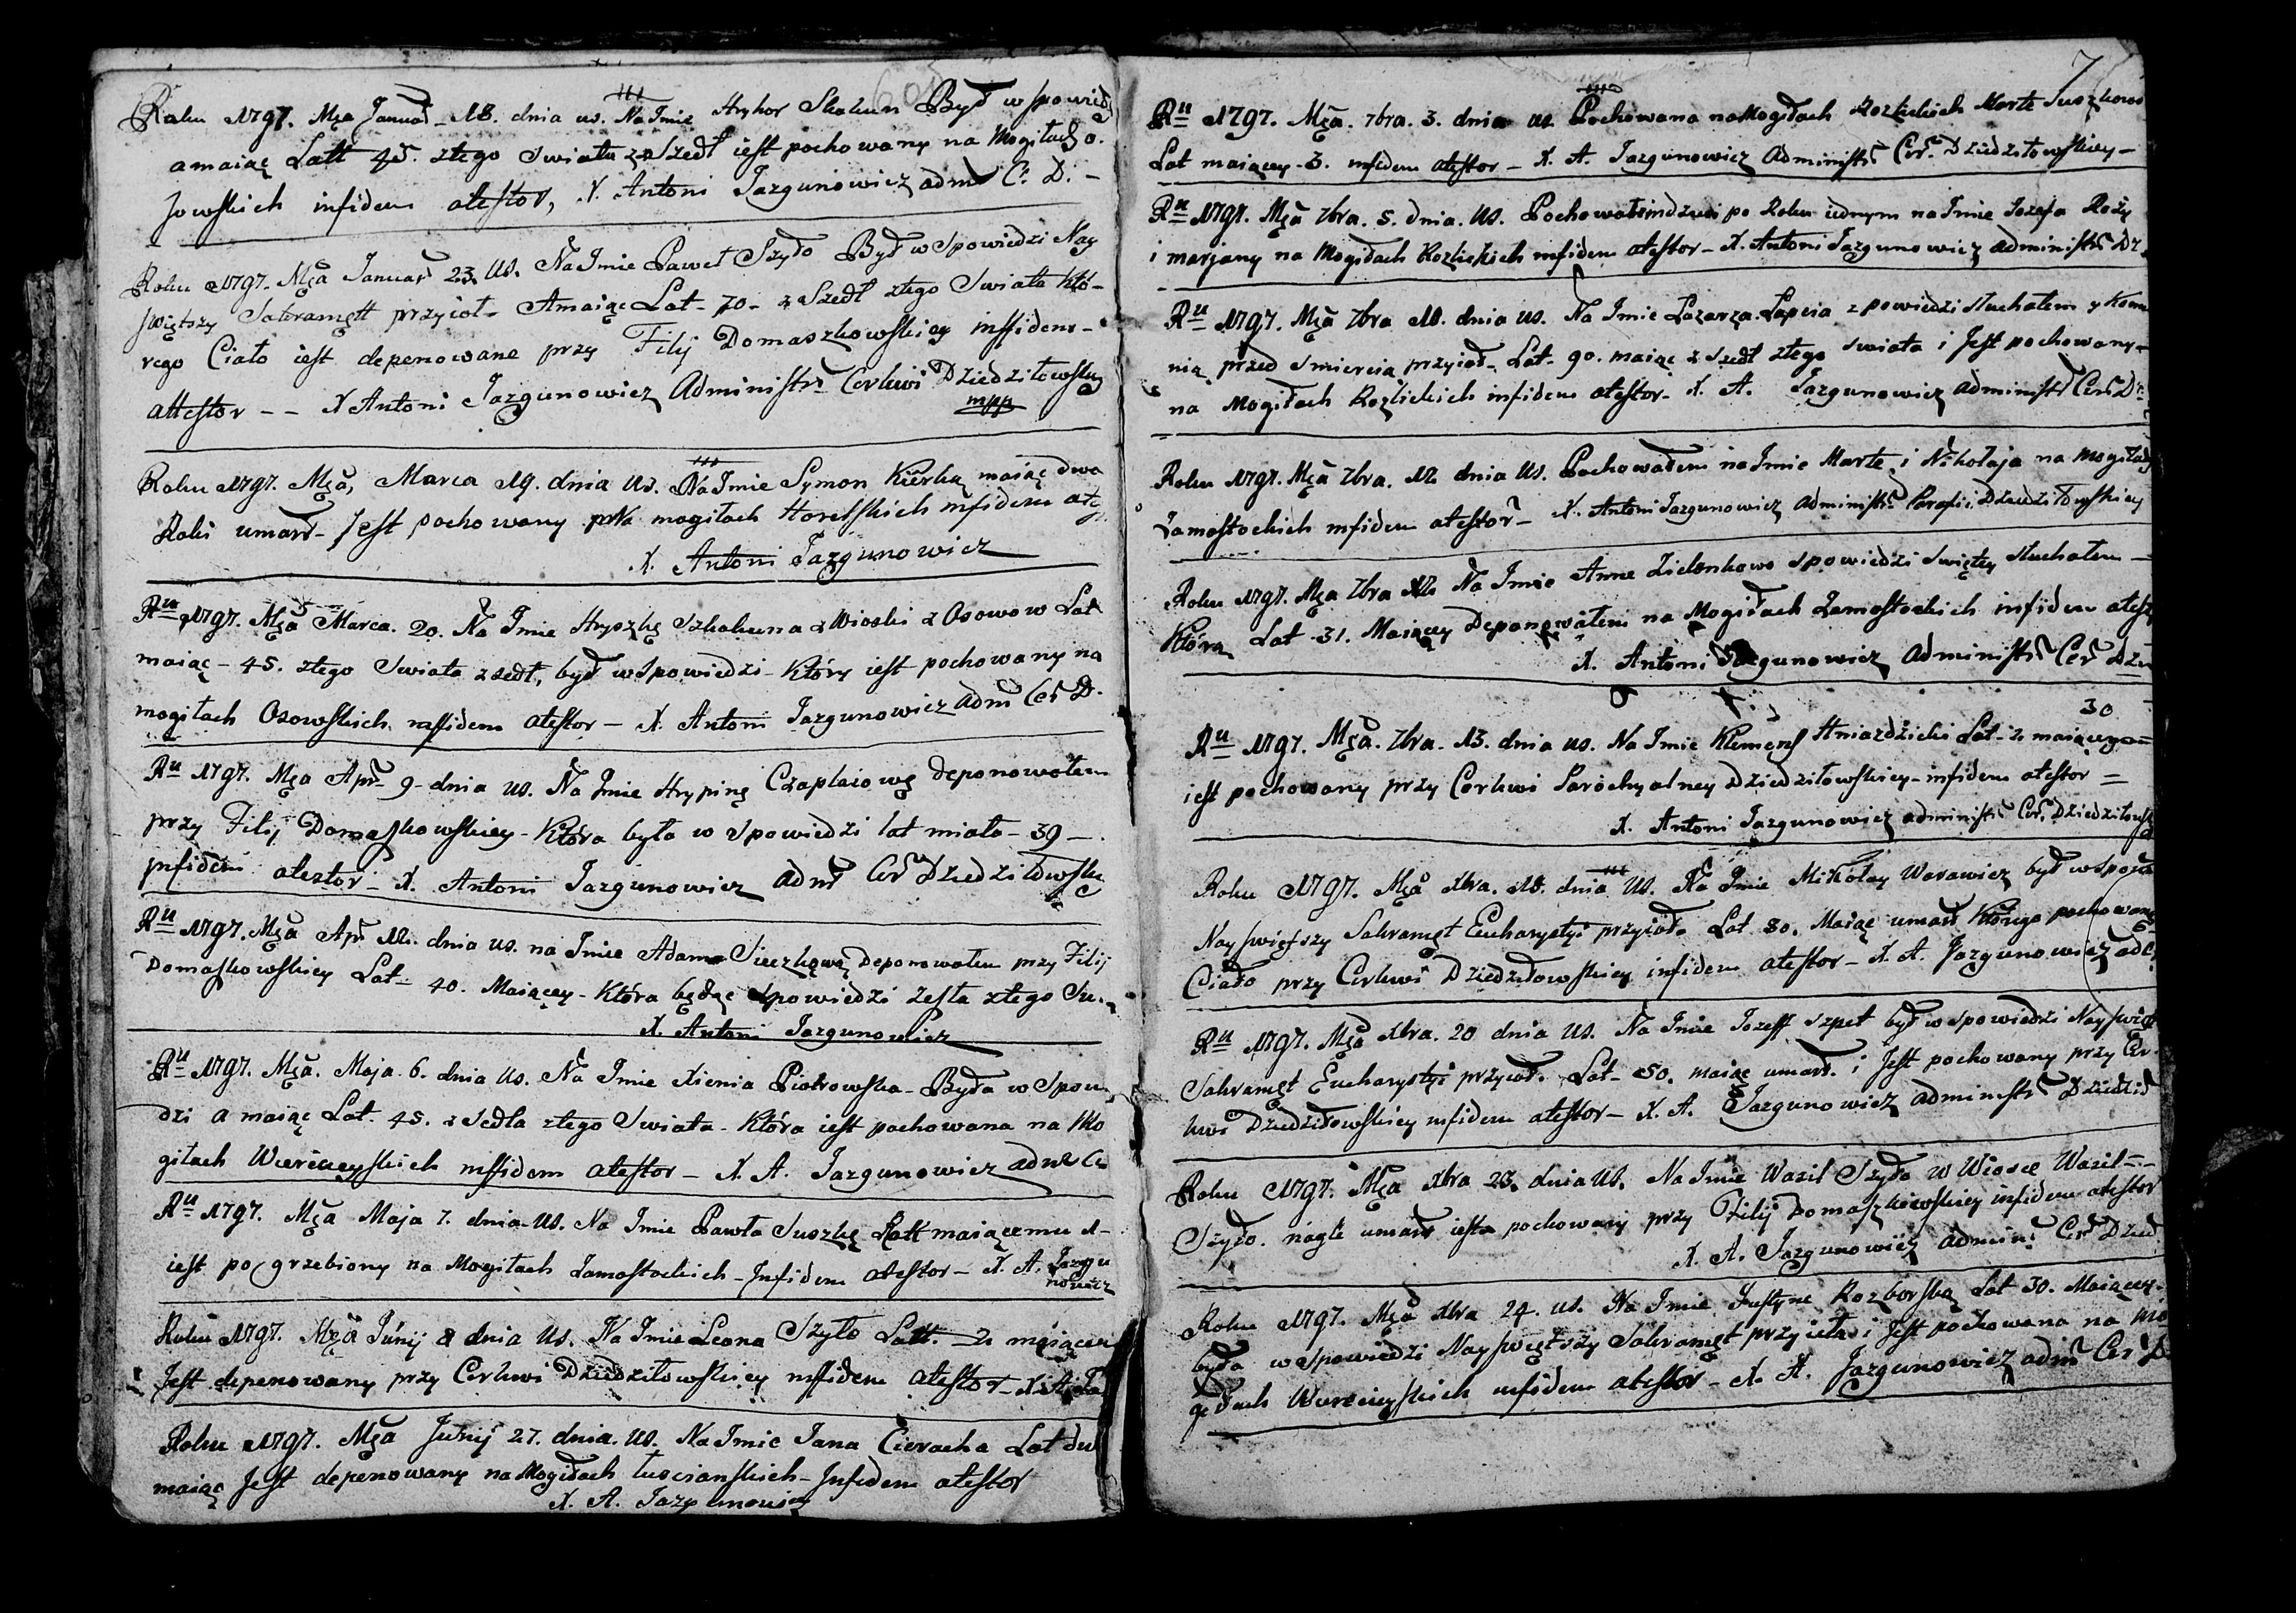 Roku 1797. Mca Januar 18. dnia us. Na Imie Hryhor Skakun Był w spowiedz
a maiąc Latt 45. ztego swiata zszedł iest pochowany na Mogiłach o.
sowskich infidem atestor, X. Antoni Jazgunowicz adm C. D. –
Roku 1797. Mca Januar 23 us. Na Imie Paweł Szyło Był w Spowiedzi Nay
swiętszy Sakramętt przyioł – A maiąc Lat – 70 – zszedł ztego Swiata Któ-
rego Ciało iest deponowane przy Filij Domaszkowskiey inffidem –
attestor – – X Antoni Jazgunowicz Administr Cerkwi Dziedziłowskiey
mpp
Roku 1797. Mca, Marca 19. dnia us. Na Imie Symon maiąc dwa
Roki umarł – Jest pochowany Na mogiłach Horelskich infidem ate
X. Antoni Jazgunowicz
Ru 1797. Mca Marca. 20. Na Imie Hryszkę Szkakuna z Wioski z Osowow Lat
maiąc – 45. ztego Swiata zsedł, był w Spowiedzi – Który iest pochowany na
mogiłach Osowskich inffidem atestor – X. Antoni Jazgunowicz adm Cer D.
Ru 1797. Mca Apr – 9 – dnia us. Na Imie Hrypinę Czaplaiowę deponowałem
przy Filij Domaszkowskiey – Która była w Spowiedzi lat miała – 39 –
infidem atestor – X. Antoni Jazgunowicz adm Cer Dziedziłowskiey
Ru 1797. Mca Apr 12. dnia us. na Imie Deponowałem przy Filij
Domaszkowskiey Lat – 40. Maiącey – Która będąc Spowiedzi zesła ztego Sw.
X. Antoni Jazgunowicz
Ru 1797. Mca. Maja 6. dnia us. Na Imie Xienia Piotrowska – Była w Spowie
dzi a maiąc Lat. 45. zsedła ztego Swiata – Która iest pochowana na Mo
giłach inffidem atestor – X. A. Jazgunowicz adm Ce
Ru 1797. Mca Maja 7. dnia us. Na Imie Pawła Suszkę Latt maiącemu 1 –
iest pogrzebiony na Mogiłach Zamostockich – Infidem atestor – X. A. Jazgu
nowicz
Roku 1797. Mca Junij 8 dnia us. Na Imie Leona Szyło Latt. – 2 maiącem
Jest deponowany przy Cerkwi Dziedziłowskiey inffidem atestor – X. A. Ja
Roku 1797. Mca Junij 27. dnia. us. Na Imie Jana Cieracha Lat dw
maiąc Jest deponowany na Mogiłach – Infidem atestor
X. A. Jazgunowicz
7
Ru 1797. Mca. 7bra. 3. dnia us Pochowana na Mogiłach Rozlickich Marte Suszkowo
Lat maiącey – 3. infidem atestor – X. A. Jazgunowicz Administr Cer. Dziedziłowskiey –
Ru 1797. Mca 7bra. 5. dnia. us. Pochowałem po Roku iednym na Imie Jozefa
i marjany na Mogiłach Rozlickich infidem atestor – X. Antoni Jazgunowicz administr Dz.
Ru 1797. Mca 7bra 10. dnia us. Na Imie Łazarza Łapcia spowiedzi słuchałem y Komu
nią przed smiercią przyioł – Lat – 90. maiąc zszedł ztego swiata i Jest pochowany –
na Mogiłach Rozlickich infidem atestor – X. A. Jazgunowicz administr Cer Dz
Roku 1797. Mca 7bra. 12 dnia us. Pochowałem na Imie Marte i Nikołaja na mogiłach
Zamostockich infidem atestor – X. Antoni Jazgunowicz Administr Parafii Dziedziłowskiey
Roku 1797. Mca 7bra 12 Na Imie Anne Zielonkowo spowiedzi swiętey słuchałem –
Która Lat – 31. Maiącey Deponowałem na Mogiłach Zamostockich infidem atest
X. Antoni Jazgunowicz Administr Cer Dzie
30
Ru 1797. Mca. 7bra. 13. dnia us. Na Imie Klemens Hniazdzicki Lat – 2 maiący –
iest pochowany przy Cerkwi Parochyalney Dziedziłowskiey – infidem atestor =
X. Antoni Jazgunowicz administr Cer. Dziedziłowsk
Roku 1797. Mca Xbra. 18. dnia us. Na Imie Mikołay Warawicz był w spowie
Nayswiętszy Sakramęt Eucharystyi przyioł. Lat 80. Maiąc umarł Którego pochowane
Ciało przy Cerkwi Dziedziłowskiey infidem atestor – X. A. Jazgunowicz adC.
Ru 1797. Mca Xbra. 20 dnia us. Na Imie Jozeff Szpet był w spowiedzi Nayswięt
Sakramęt Eucharystyi przyioł. Lat – 50. maiąc umarł. i Jest pochowany przy Cer.
kwi Dziedziłowskiey infidem atestor – X. A. Jazgunowicz Administr Dziedził
Roku 1797. Mca Xbra 23. dnia us. Na Imie Wasil Szyło w Wiosce Wasil –
Szyło. nagle umarł iest pochowany przy Filij Domaszkowskiey infidem atestor
X. A. Jazgunowicz admin: Cer Dzied.
Roku 1797. Mca Xbra 24. us. Na Imie Justyne Rozborską Lat 30. Maiącey.
była w Spowiedzi Nayswiętszy Sakramęt przyieła i Jest pochowana na Mo
giłach infidem atestor – X. A. Jazgunowicz adm Cer D